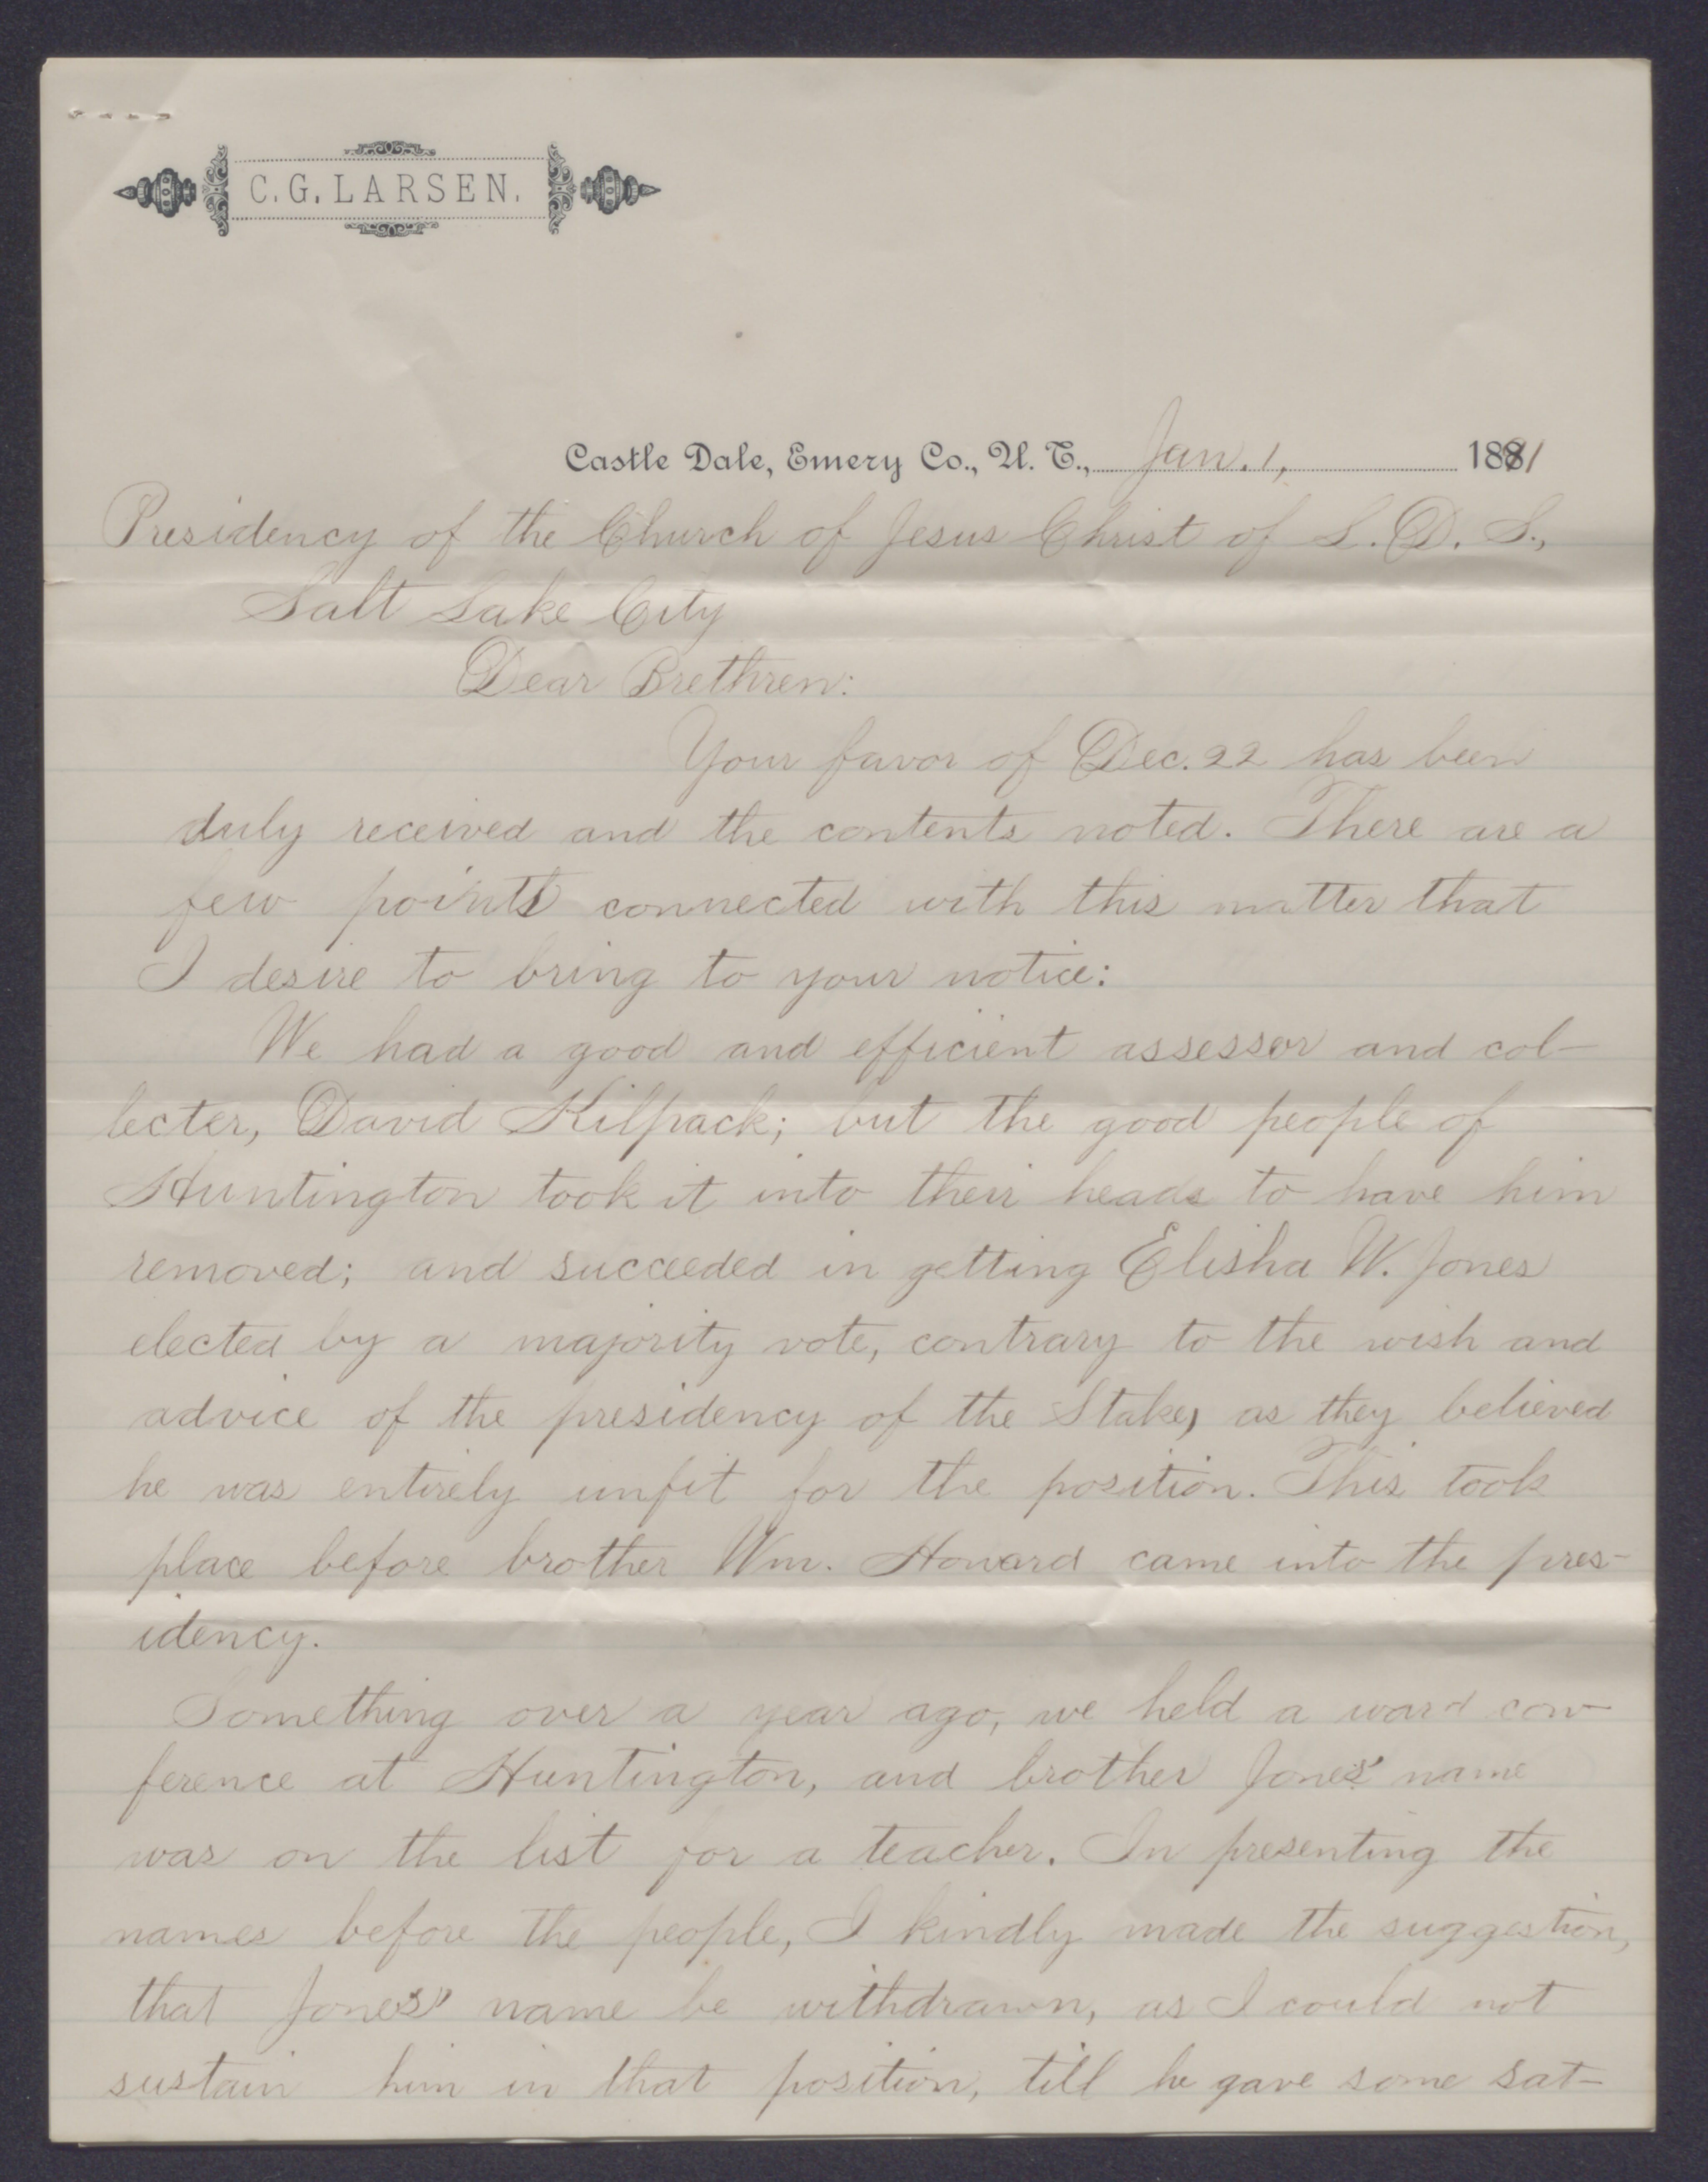 C. G. LARSEN.
Castle Dale, Emery Co., U. T., Jan. 1, 1891
Presidency of the Church of Jesus Christ of L. D. S.,
Salt Lake City
Dear Brethren:
Your favor of Dec. 22 has been
duly received and the contents noted. There are a
few points connected with this matter that
I desire to bring to your notice:
We had a good and efficient assessor and col-
lecter, David Kilpack; but the good people of
Huntington took it into their heads to have him
removed; and succeeded in getting Elisha W. Jones
elected by a majority vote, contrary to the wish and
advice of the presidency of the Stake, as they believed
he was entirely unfit for the position. This took
place before brother Wm. Howard came into the pres-
idency.
Something over a year ago, we held a ward con-
ference at Huntington, and brother Jones' name
was on the list for a teacher. In presenting the
names before the people, I kindly made the suggestion,
that Jones' name be withdrawn, as I could not
sustain him in that position, till he gave some sat-